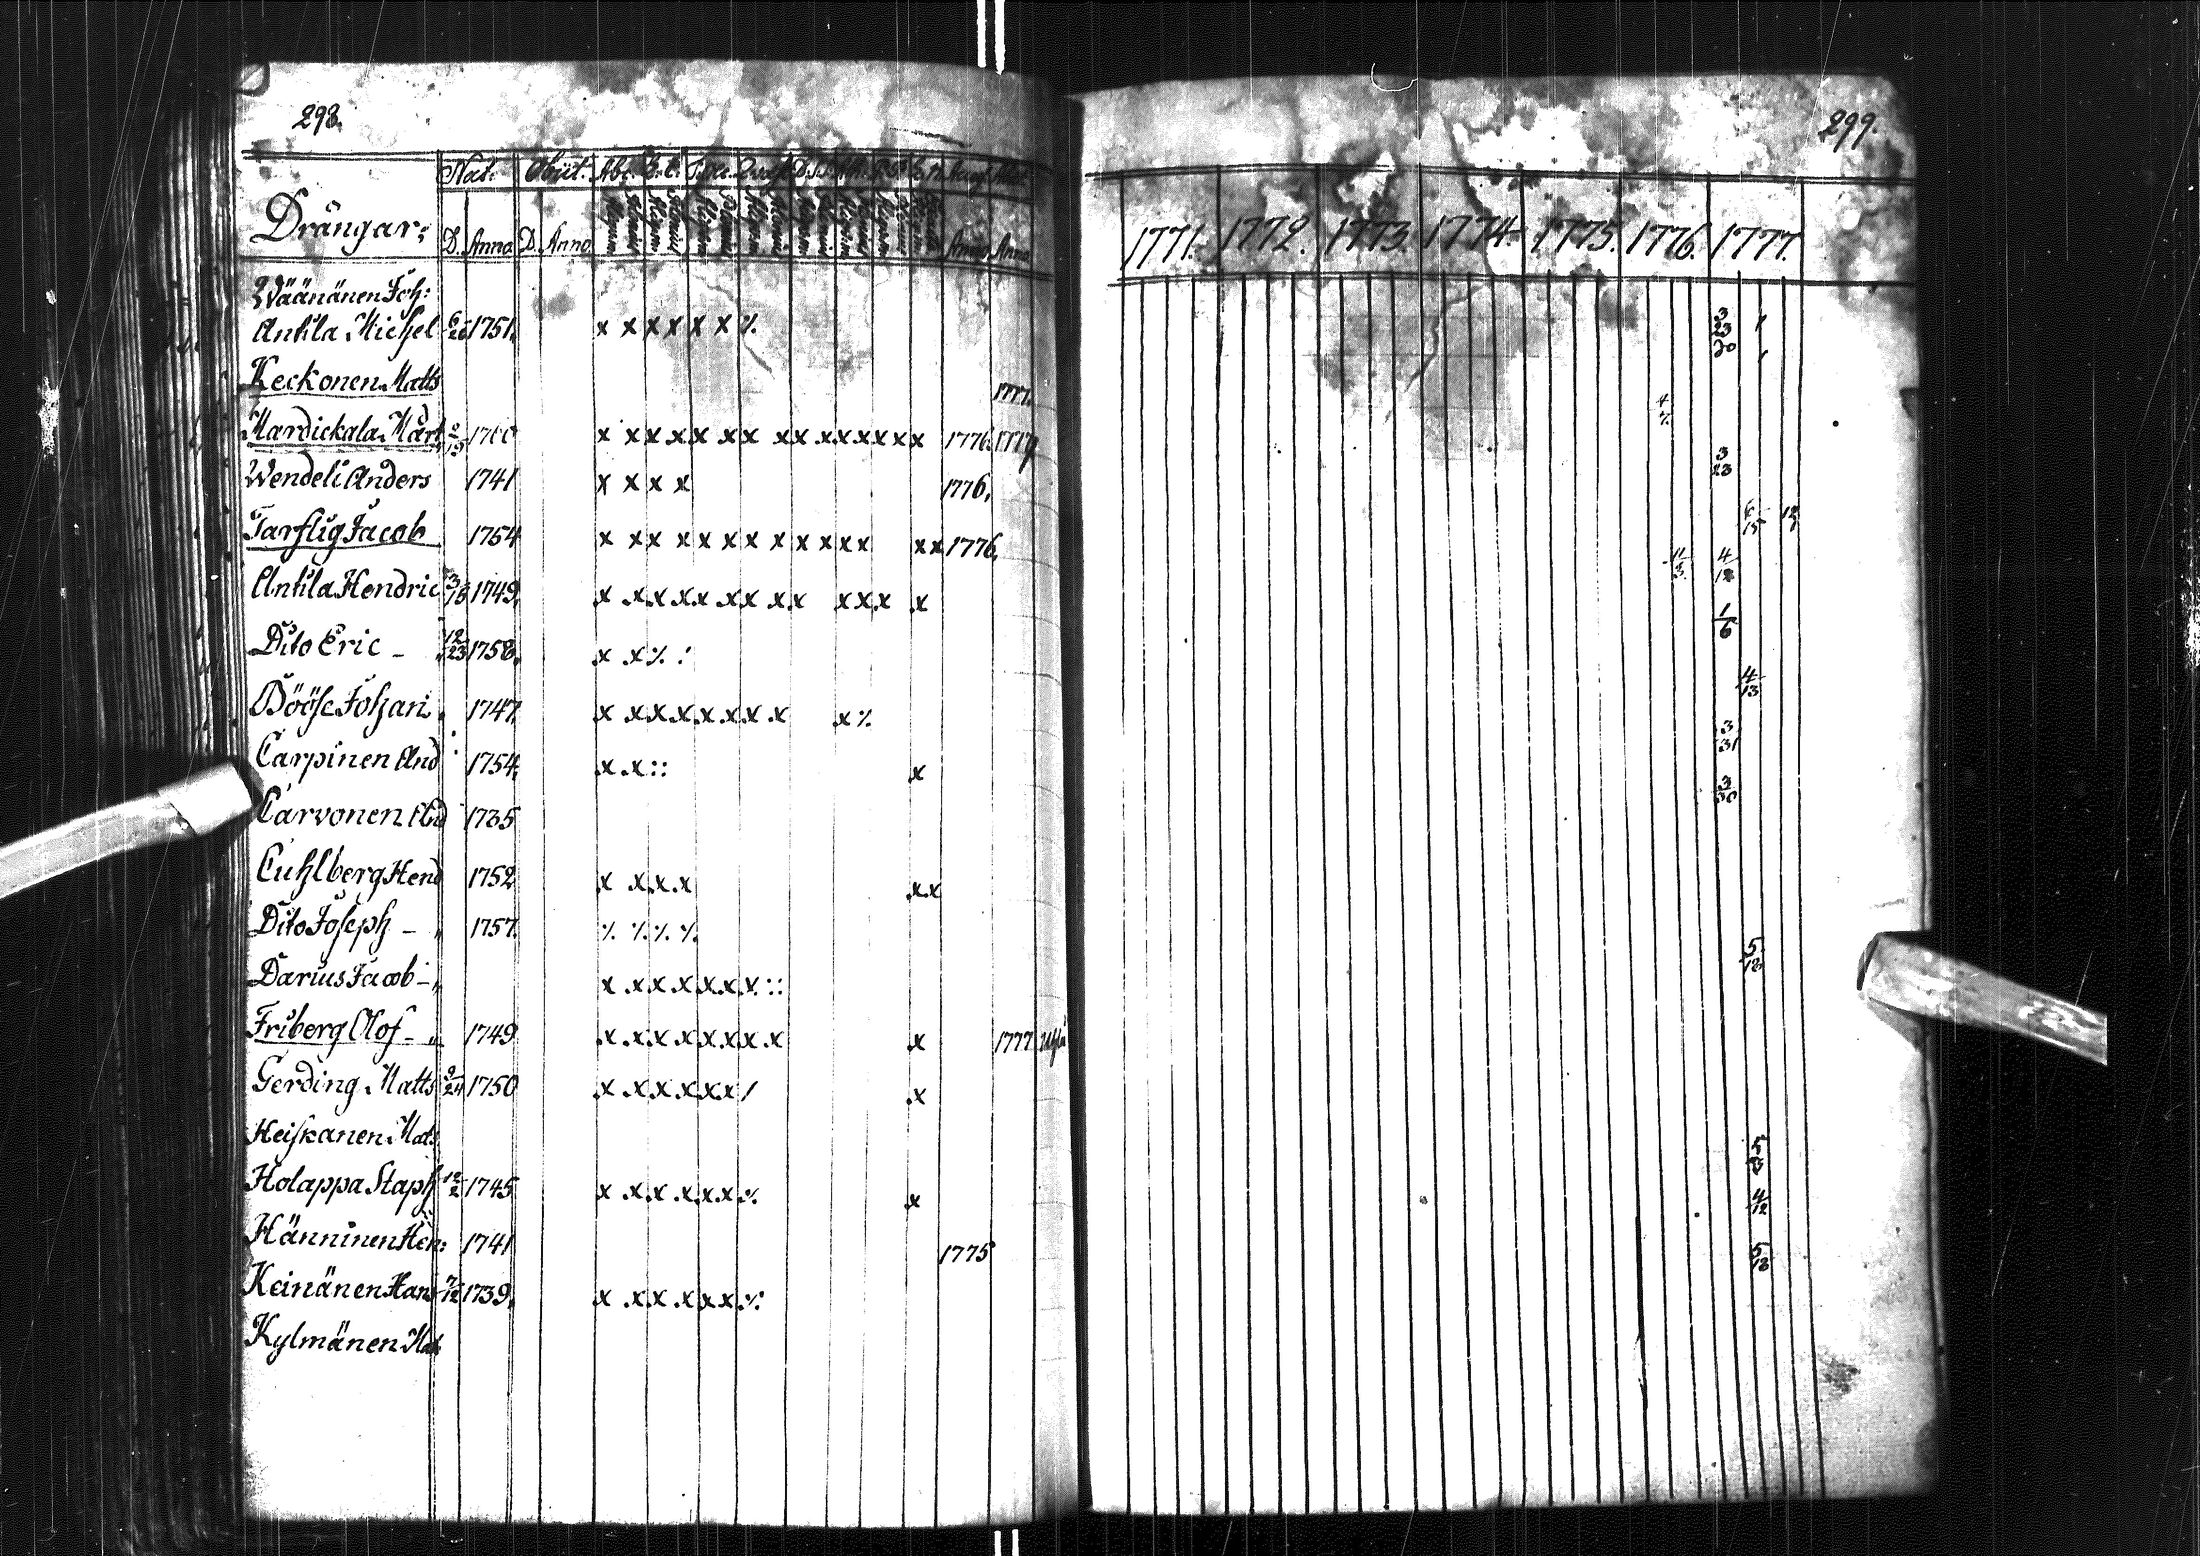 298.
Drängar:
Nat:
Obiit:
D. Anno D. Anno
Anno Anno
Wäänänen Joh:
Antila Michel 6/26 1751. x x x x x x ٪
Keckonen Matts 1777.
Mardickala Mårt 1776.
Wendeli Anders 1741 x x x x 1776.
Tarflig Jacob 1754 x x x x x x x x x x x x x x 1776.
Antila Hendric 3/18 1749. x x x x x x x x x x x x x
Dito Eric - 12/23 1758. x x ٪
Bööse Johan 1747 x x x x x x x x x ٪
Carpinen And 1754. x x :: x
Carvonen And 1735
Cuhlberg Hend 1752 x x x x x x
Dito Joseph - " 1757. ٪ ٪ ٪ ٪
Darius Jacob - " x x x x x x x ::
Friberg Olof - " 1749 x x x x x x x x x 1777
Gerding Matts 9/24 1750 x x x x x x / x
Heiskanen Mats
Holappa Staph 12/2 1745 x x x x x x ٪ x
Hänninen Hen: 1741 1775
Keinänen Hans 7/12 1739. x x x x x x ٪
Kylmänen Mat
299.
1771. 1772. 1773. 1774. 1775. 1776. 1777.
3/23
20
4/7.
3/23
6/15
11/3. 4/12
1/6
4/13
3/31
3/30
5/18
5
4/12
5/18